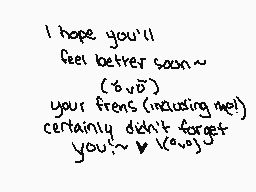 I hope you'll
feel better soon~
(ŏvŏ)
your frens (including me!)
certainly didn't forget
you!~ ♥ \(^v^)